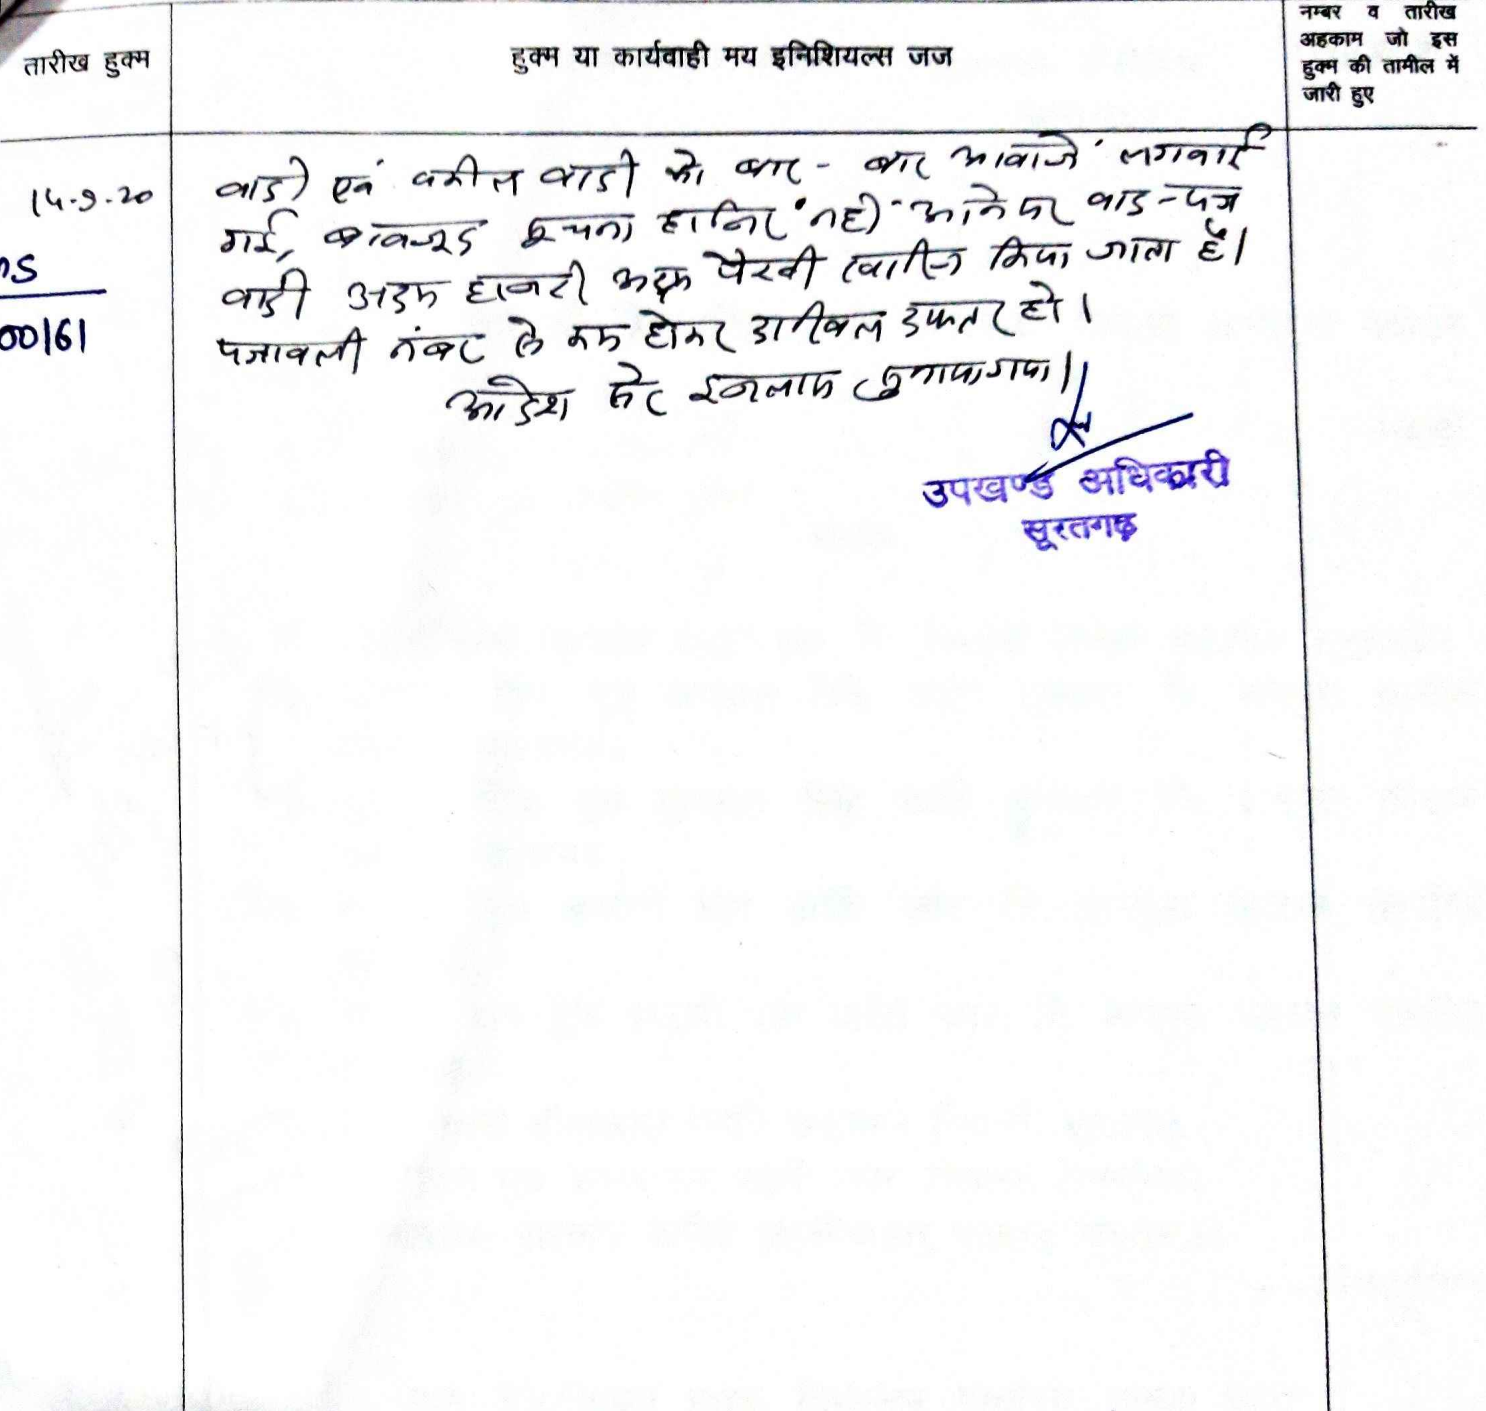 तारीख हुक्म
हुक्म या कार्यवाही मय इनिशियल्स जज
नम्बर व तारीख
अहकाम जो इस
हुक्म की तामील में
जारी हुए
14.9.20
वादी एवं वकील वादी को बार-बार आवाजें लगवाई
गई, बावजूद सूचना हाजिर नहीं आने पर वाद-पत्र
वादी अदम हाजरी अदम पैरवी खारिज किया जाता है।
पत्रावली नंबर से कम होकर दाखिल दफ्तर हो।
आदेश सरे इजलास सुनाया गया।
00161
उपखण्ड अधिकारी
सूरतगढ़